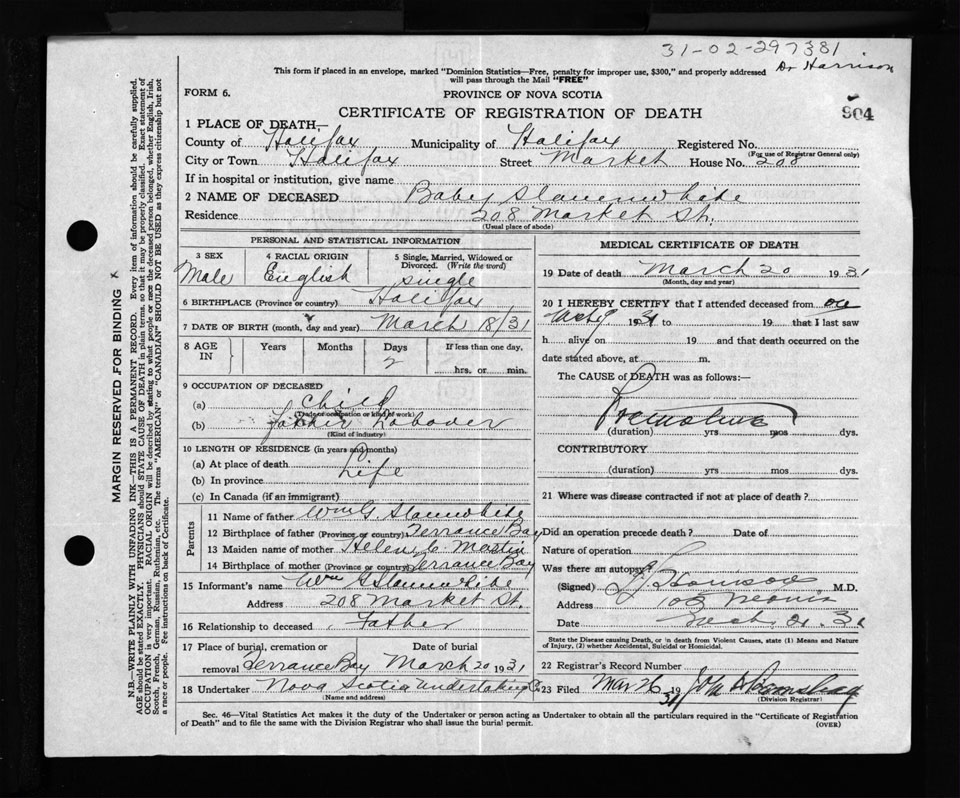 31-02-297381
Dr Harrison
This form if placed in an envelope, marked "Dominion Statistics—Free, penalty for improper use, $300," and properly addressed
will pass through the Mail "FREE"
FORM 6.
PROVINCE OF NOVA SCOTIA
904
CERTIFICATE OF REGISTRATION OF DEATH
1 PLACE OF DEATH,—
County of Halifax Municipality of Halifax Registered No.
(For use of Registrar General only)
City or Town Halifax Street Market House No. 208
If in hospital or institution, give name
2 NAME OF DECEASED Baby Slaunwhite
Residence 208 Market St.
(Usual place of abode)
PERSONAL AND STATISTICAL INFORMATION
3 SEX 4 RACIAL ORIGIN 5 Single, Married, Widowed or
Divorced. (Write the word)
Male English single
6 BIRTHPLACE (Province or country) Halifax
7 DATE OF BIRTH (month, day and year) March 18/31
8 AGE IN Years Months Days If less than one day,
2 hrs. or min.
9 OCCUPATION OF DECEASED
(a) Child
(Trade of occupation or kind of work)
(b) father Laborer
(Kind of industry)
10 LENGTH OF RESIDENCE (in years and months)
(a) At place of death Life
(b) In province
(c) In Canada (if an immigrant)
Parents
11 Name of father Wm G. Slaunwhite
12 Birthplace of father (Province or country) Terrance Bay
13 Maiden name of mother Helen C Martin
14 Birthplace of mother (Province or country) Terrance Bay
15 Informant's name Wm G Slaunwhite
Address 208 Market St.
16 Relationship to deceased Father
17 Place of burial, cremation or Date of burial
removal Terrance Bay March 20 1931
18 Undertaker Nova Scotia Undertaking Co
(Name and address)
MEDICAL CERTIFICATE OF DEATH
19 Date of death March 20 1931
(Month, day and year)
20 I HEREBY CERTIFY that I attended deceased from
1931 to 19 that I last saw
h alive on 19 and that death occurred on the
date stated above, at m.
The CAUSE of DEATH was as follows:—
Premature
(duration) yrs mos dys.
CONTRIBUTORY
(duration) yrs mos dys.
21 Where was disease contracted if not at place of death?
Did an operation precede death? Date of
Nature of operation
Was there an autopsy?
(Signed) Harrison M.D.
Address
Date 31
State the Disease causing Death, or in death from Violent Causes, state (1) Means and Nature
of Injury, (2) whether Accidental, Suicidal or Homicidal.
22 Registrar's Record Number
23 Filed Mar 26 1931
(Division Registrar)
Sec. 46—Vital Statistics Act makes it the duty of the Undertaker or person acting as Undertaker to obtain all the particulars required in the "Certificate of Registration
of Death" and to file the same with the Division Registrar who shall issue the burial permit.
(OVER)
MARGIN RESERVED FOR BINDING
N.B.—WRITE PLAINLY WITH UNFADING INK—THIS IS A PERMANENT RECORD. Every item of information should be carefully supplied.
AGE should be stated EXACTLY. PHYSICIANS should STATE CAUSE OF DEATH in plain terms, so that it may be properly classified. Exact statement of
OCCUPATION is very important. RACIAL ORIGIN will be described by stating to what people or race the deceased person belonged, whether English, Irish,
Scotch, French, German, Russian, Ruthenian, etc. The terms "AMERICAN" or "CANADIAN" SHOULD NOT BE USED as they express citizenship but not
a race or people. Fee instructions on back of Certificate.